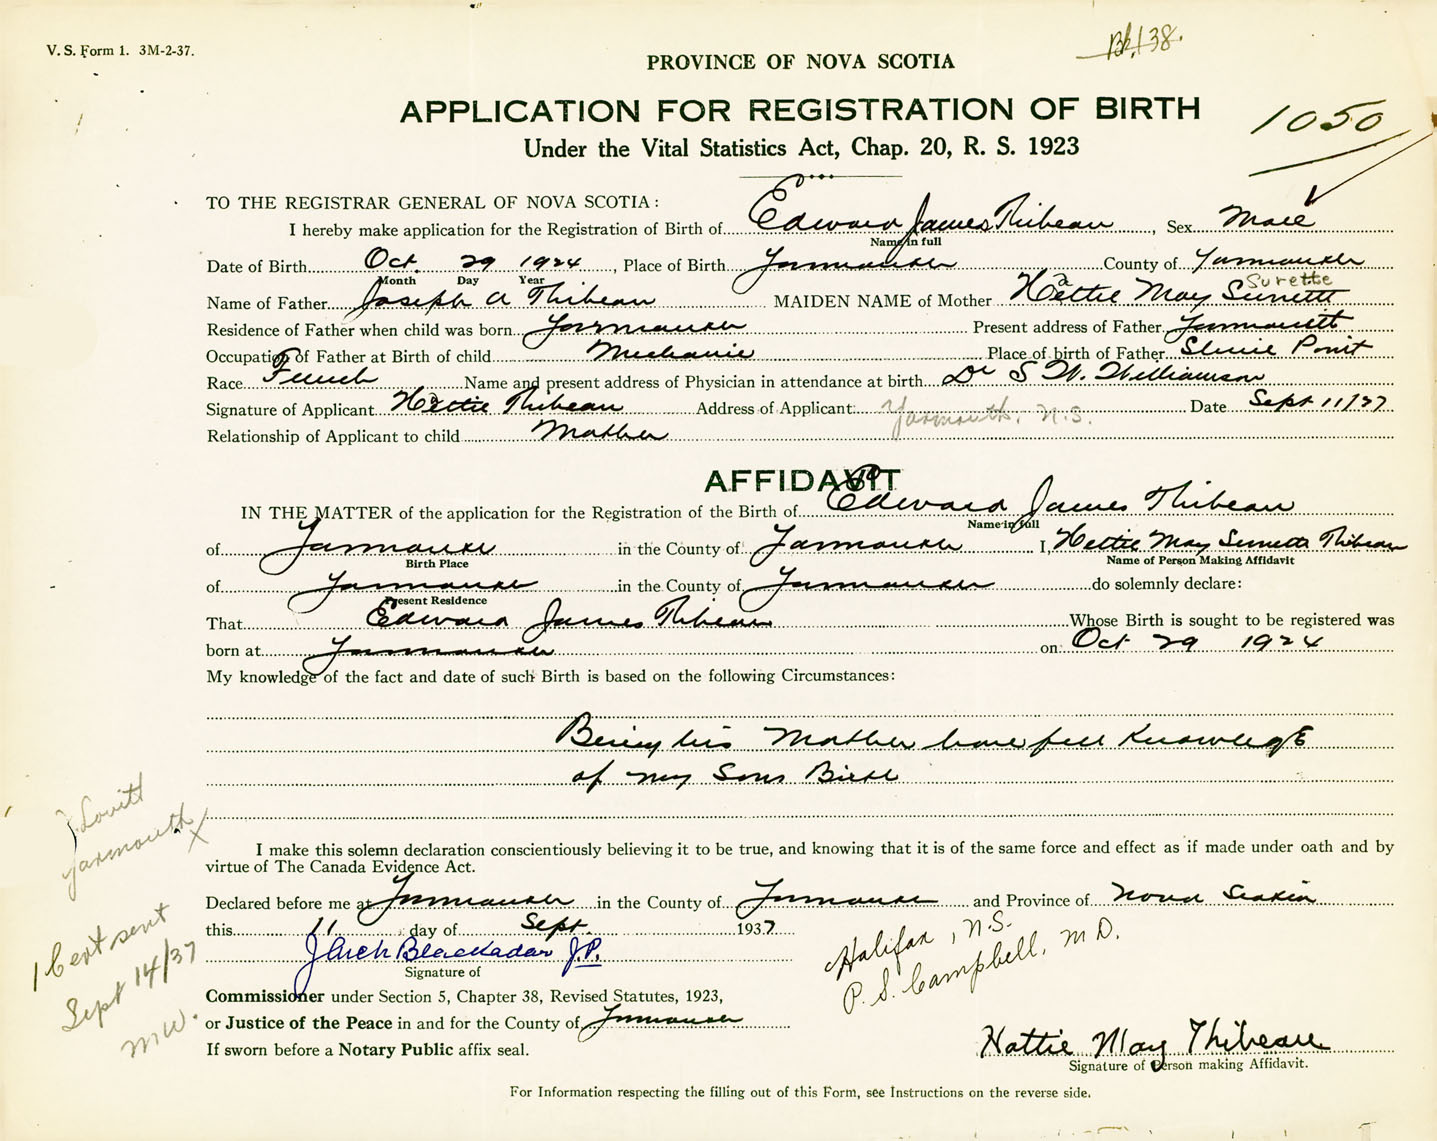 V. S. Form 1. 3M-2-37.
PROVINCE OF NOVA SCOTIA
APPLICATION FOR REGISTRATION OF BIRTH
1050
Under the Vital Statistics Act, Chap. 20, R. S. 1923
TO THE REGISTRAR GENERAL OF NOVA SCOTIA:
I hereby make application for the Registration of Birth of Edward James Thibeau, Sex Male
Name in full
Date of Birth Oct. 29 1924, Place of Birth Yarmouth County of Yarmouth
Month Day Year
Surette
Name of Father Joseph A Thibeau MAIDEN NAME of Mother Hattie May Surrette
Residence of Father when child was born Yarmouth Present address of Father Yarmouth
Occupation of Father at Birth of child Mechanic Place of birth of Father Sluice Point
Race French Name and present address of Physician in attendance at birth Dr S W. Williamson
Signature of Applicant Hattie Thibeau Address of Applicant: Yarmouth, N.S. Date Sept 11/37
Relationship of Applicant to child Mother
AFFIDAVIT
IN THE MATTER of the application for the Registration of the Birth of Edward James Thibeau
Name in full
of Yarmouth in the County of Yarmouth I, Hettie May Surrette Thibeau
Birth Place Name of Person Making Affidavit
of Yarmouth in the County of Yarmouth do solemnly declare:
Present Residence
That Edward James Thibeau Whose Birth is sought to be registered was
born at Yarmouth on Oct 29 1924
My knowledge of the fact and date of such Birth is based on the following Circumstances:
Being his Mother have full Knowledge
of my Sons Birth
Lovitt
Yarmouth X
I make this solemn declaration conscientiously believing it to be true, and knowing that it is of the same force and effect as if made under oath and by
virtue of The Canada Evidence Act.
Declared before me at Yarmouth in the County of Yarmouth and Province of Nova Scotia
this 11 day of Sept. 1937
J Arch Blackadar J.P.
Signature of
Halifax, N.S.
P. S. Campbell, M D.
1 Cert sent
Sept 14/37
M W.
Commissioner under Section 5, Chapter 38, Revised Statutes, 1923,
or Justice of the Peace in and for the County of Yarmouth
If sworn before a Notary Public affix seal.
Hattie May Thibeau
Signature of Person making Affidavit.
For Information respecting the filling out of this Form, see Instructions on the reverse side.